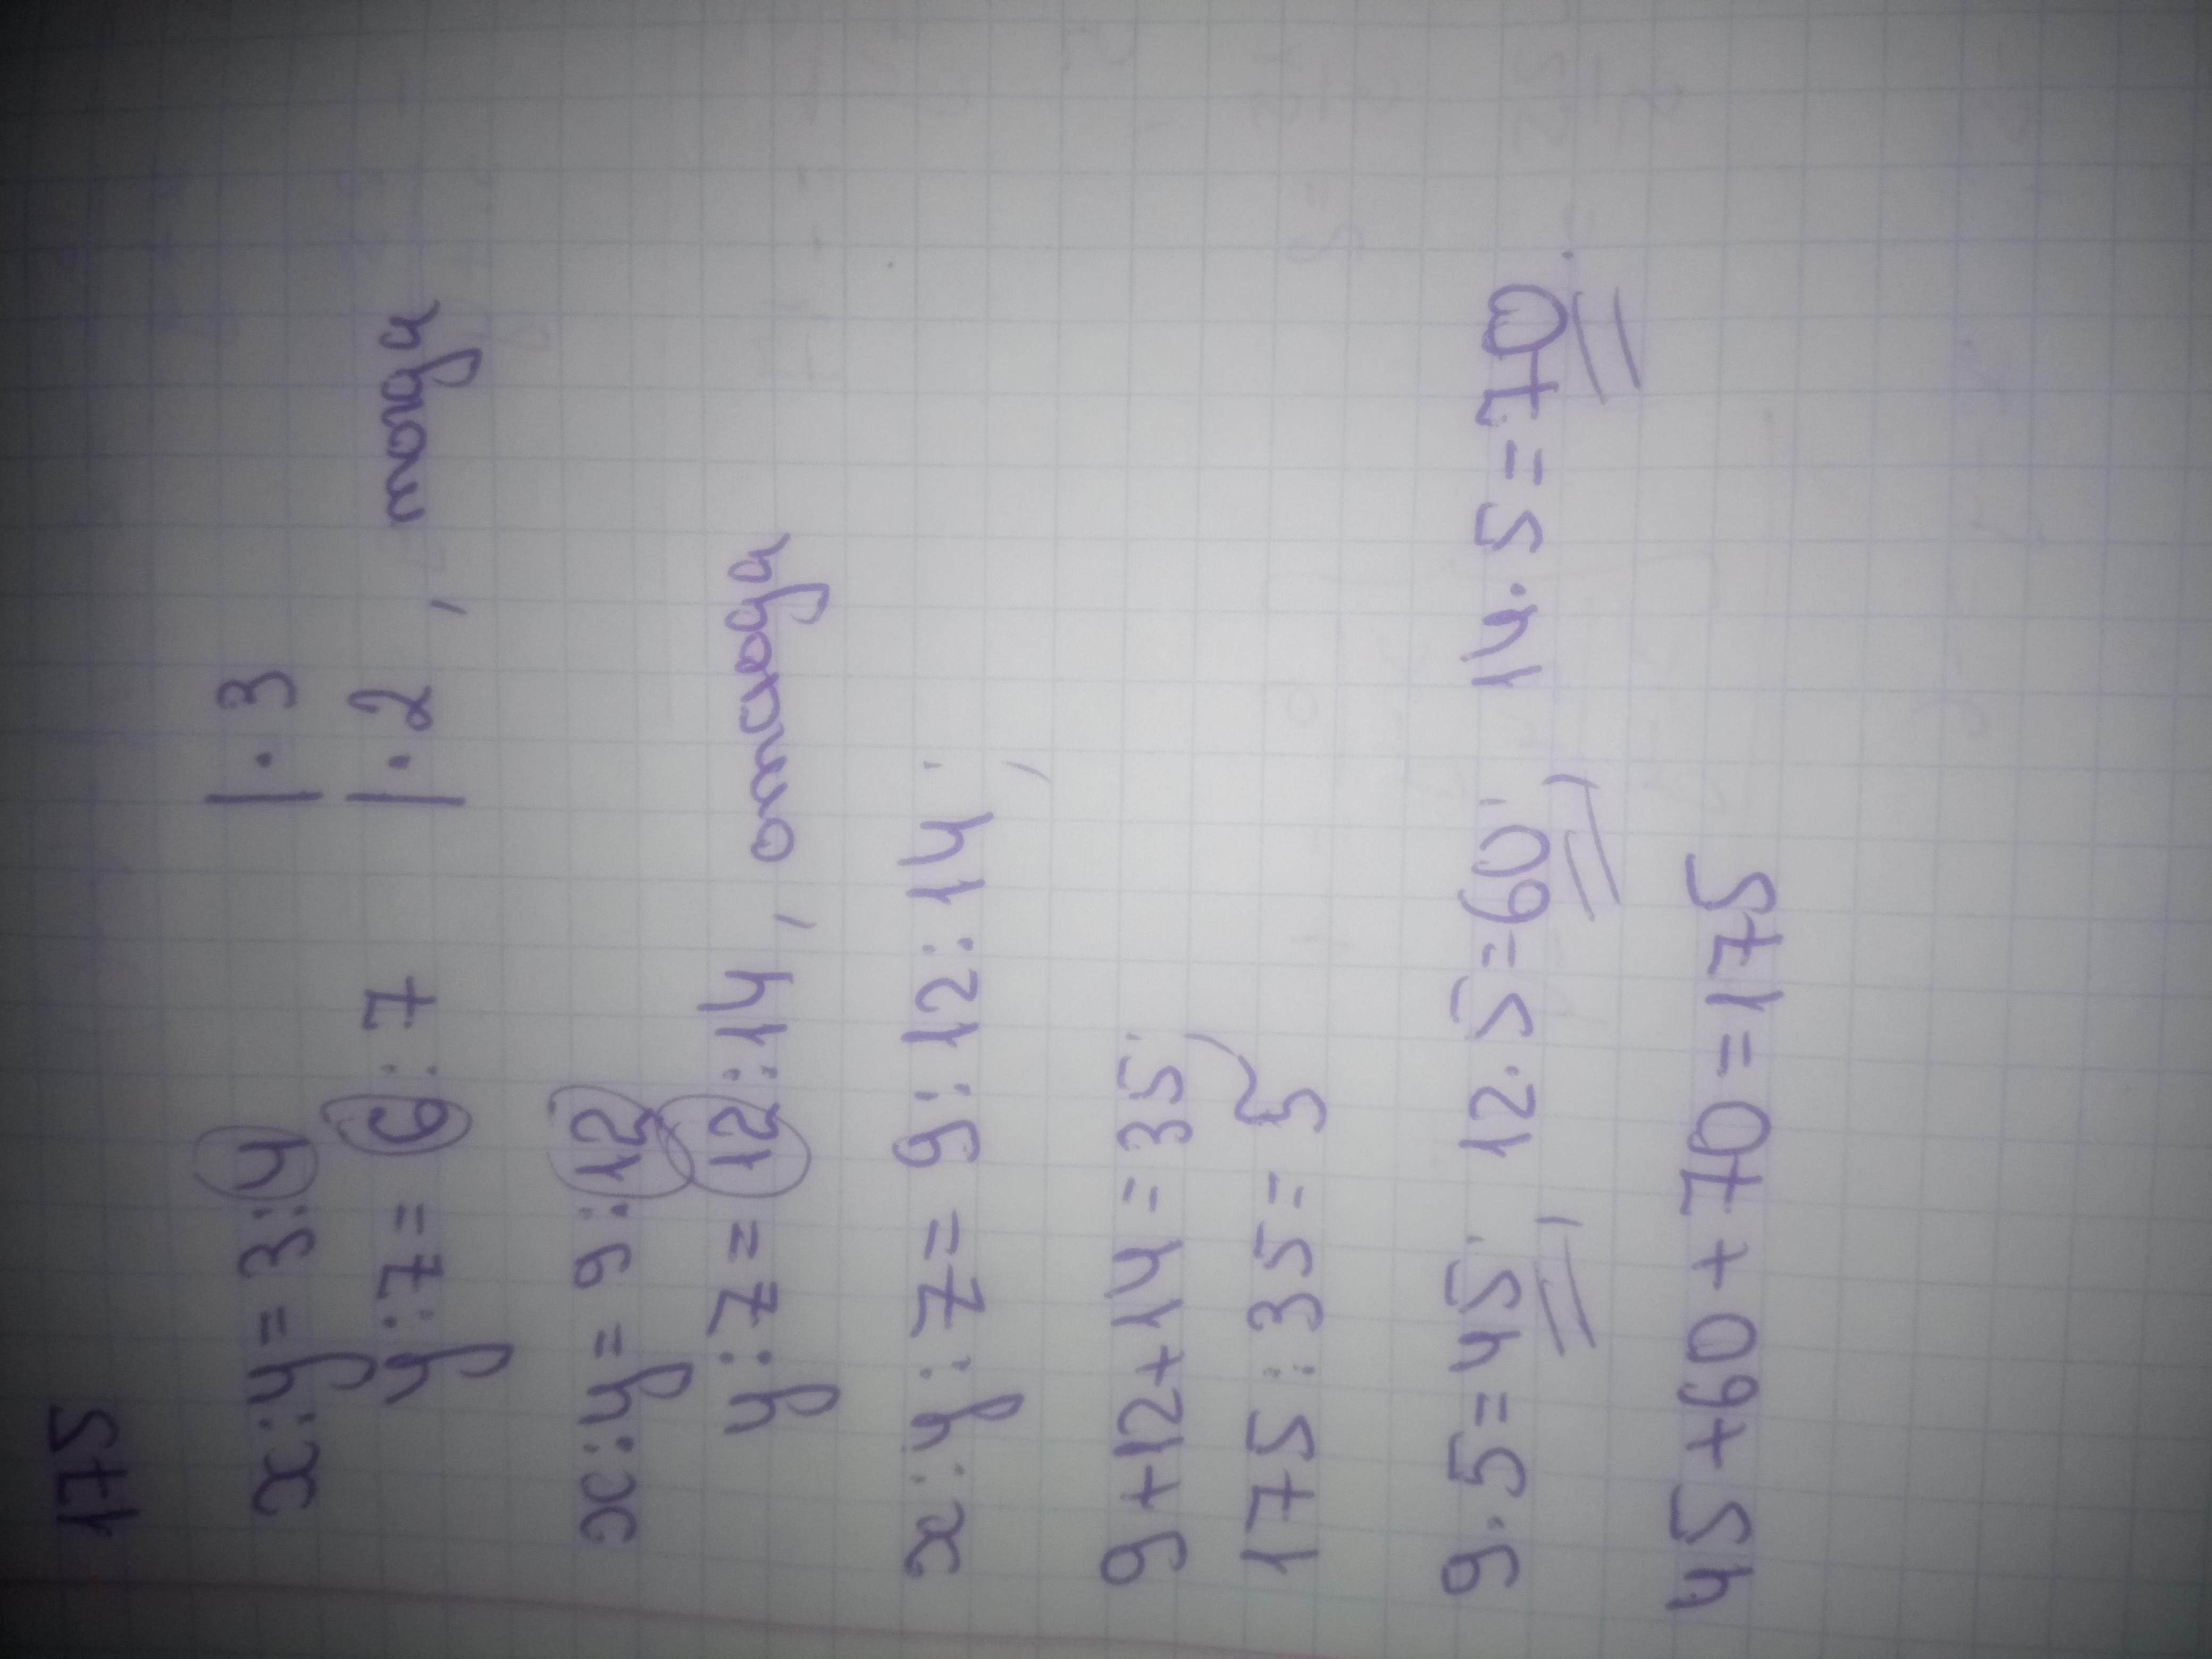 175
x:y = 3:4 |·3
y:z = 6:7 |·2, тогда
x:y = 9:12
y:z = 12:14, отсюда
x:y:z = 9:12:14;
9+12+14=35;
175:35=5
9·5=45; 12·5=60; 14·5=70.
45+60+70=175